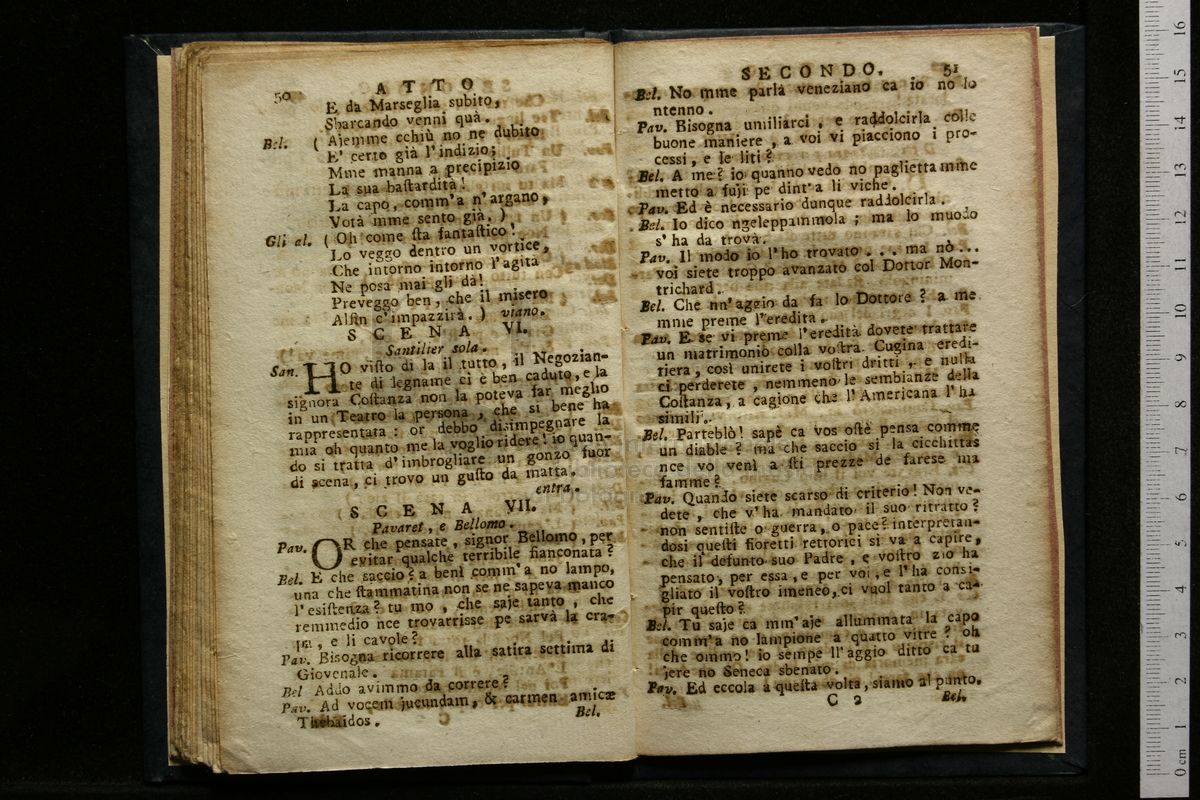 50
ATTO
E da Marseglia subito,
Sbarcando venni quà.
Bel. ( Ajemme cchiù no ne dubito
E' certo già l'indizio;
Mme manna a precipizio
La sua bastardità!
La capo, comm'a n'argano,
Votà mme sento già. )
Gli al. ( Oh come sta fantastico!
Lo veggo dentro un vortice,
Che intorno intorno l'agita
Ne posa mai gli dà!
Preveggo ben, che il misero
Alfin c'impazzirà. ) viano.
SCENA VI.
Santilier sola.
San. HO visto di là il tutto, il Negozian-
te di legname ci è ben caduto, e la
signora Costanza non la poteva far meglio
in un Teatro la persona, che si bene ha
rappresentata: or debbo disimpegnare la
mia oh quanto me la voglio ridere! io quan-
do si tratta d'imbrogliare un gonzo fuor
di scena, ci trovo un gusto da matta.
entra.
SCENA VII.
Pavaret, e Bellomo.
Pav. OR che pensate, signor Bellomo, per
evitar qualche terribile fianconata?
Bel. E che saccio? a benì comm'a no lampo,
una che stammatina non se ne sapeva manco
l'esistenza? tu mo, che saje tanto, che
remmedio nce trovarrisse pe sarvà la cra-
pa, e li cavole?
Pav. Bisogna ricorrere alla satira settima di
Giovenale.
Bel Addò avimmo da correre?
Pav. Ad vocem jucundam, & carmen amicæ
Thebaidos.
Bel.
SECONDO. 51
Bel. No mme parlà veneziano ca io no lo
ntenno.
Pav. Bisogna umiliarci, e raddolcirla colle
buone maniere, a voi vi piacciono i pro-
cessi, e le liti?
Bel. A me? io quanno vedo no paglietta mme
metto a fujì pe dint'a li viche.
Pav. Ed è necessario dunque raddolcirla.
Bel. Io dico ngeleppammola; ma lo muodo
s'ha da trovà.
Pav. Il modo io l'ho trovato... ma nò...
voi siete troppo avanzato col Dottor Mon-
trichard.
Bel. Che nn'aggio da fa lo Dottore? a me
mme preme l'eredità.
Pav. E se vi preme l'eredità dovete trattare
un matrimonio colla vostra Cugina eredi-
riera, così unirete i vostri dritti, e nulla
ci perderete, nemmeno le sembianze della
Costanza, a cagione che l'Americana l'ha
simili.
Bel. Parteblò! sapè ca vos ostè pensa comme
un diable? ma che saccio si la cicchittas
nce vo venì a sti prezze de farese ma
famme?
Pav. Quando siete scarso di criterio! Non ve-
dete, che v'ha mandato il suo ritratto?
non sentiste o guerra, o pace? interpretan-
dosi questi fioretti rettorici si va a capire,
che il defunto suo Padre, e vostro zio ha
pensato, per essa, e per voi, e l'ha consi-
gliato il vostro imeneo, ci vuol tanto a ca-
pir questo?
Bel. Tu saje ca mm'aje allummata la capo
comm'a no lampione a quatto vitre? oh
che ommo! io sempe ll'aggio ditto ca tu
jere no Seneca sbenato.
Pav. Ed eccola a questa volta, siamo al punto.
C 2
Bel.